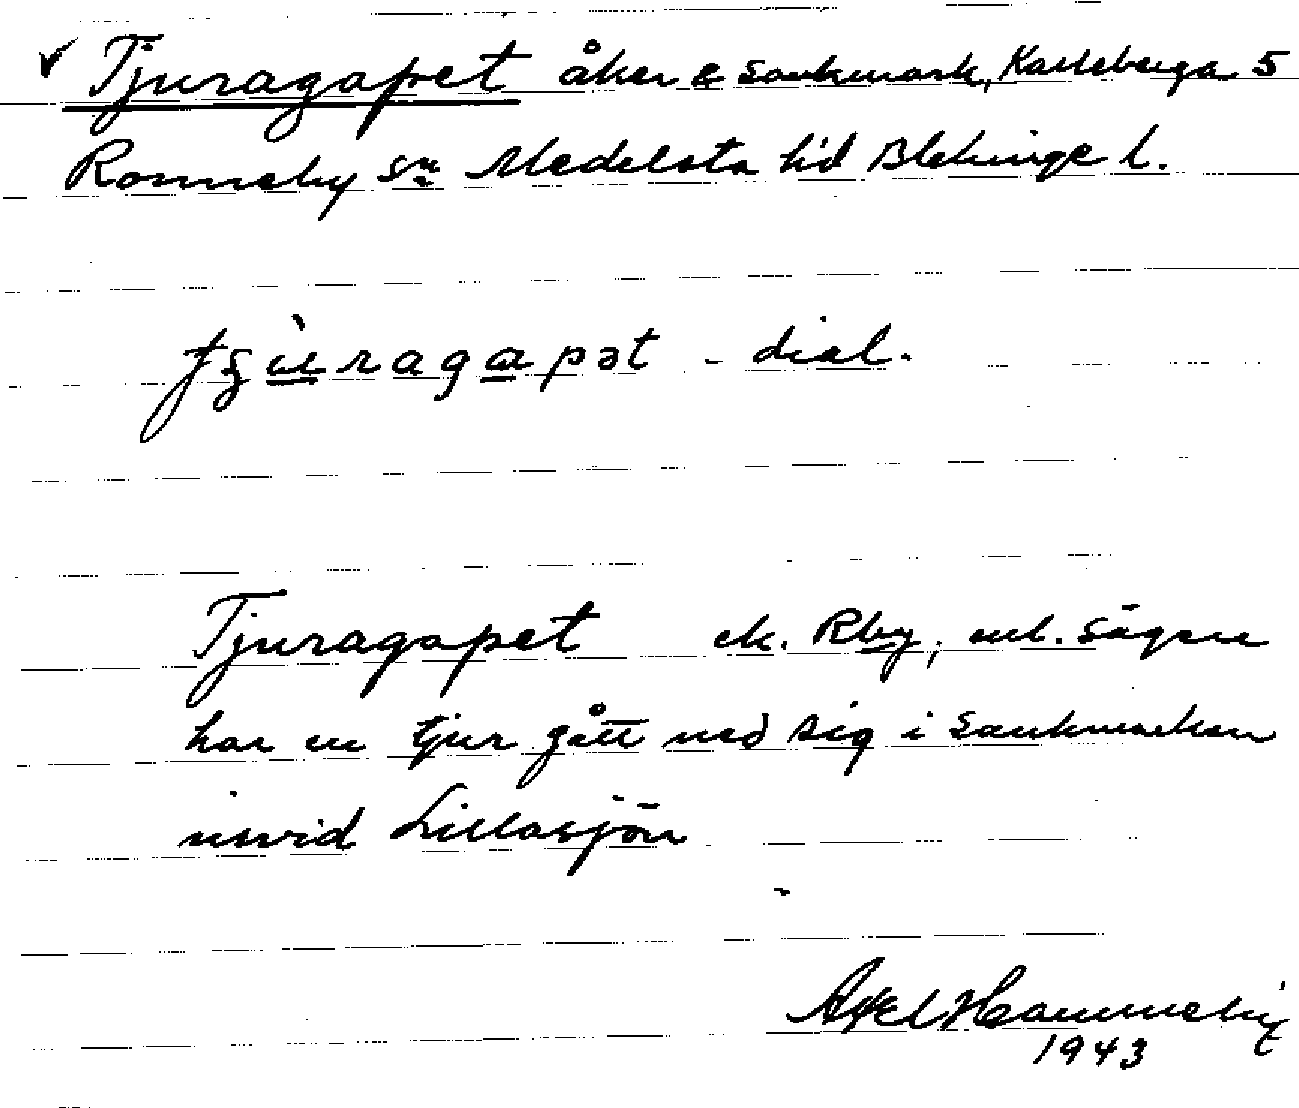 Tjuragapet åker & sankmark, Karleberga 5
Ronneby sn Medelsta hd Blekinge l.
tjùragapət - dial.
Tjuragapet ek. Rby, enl. sägen
har en tjur gått ned sig i sankmarken
invid Lillasjön
Axel Hammeby
1943